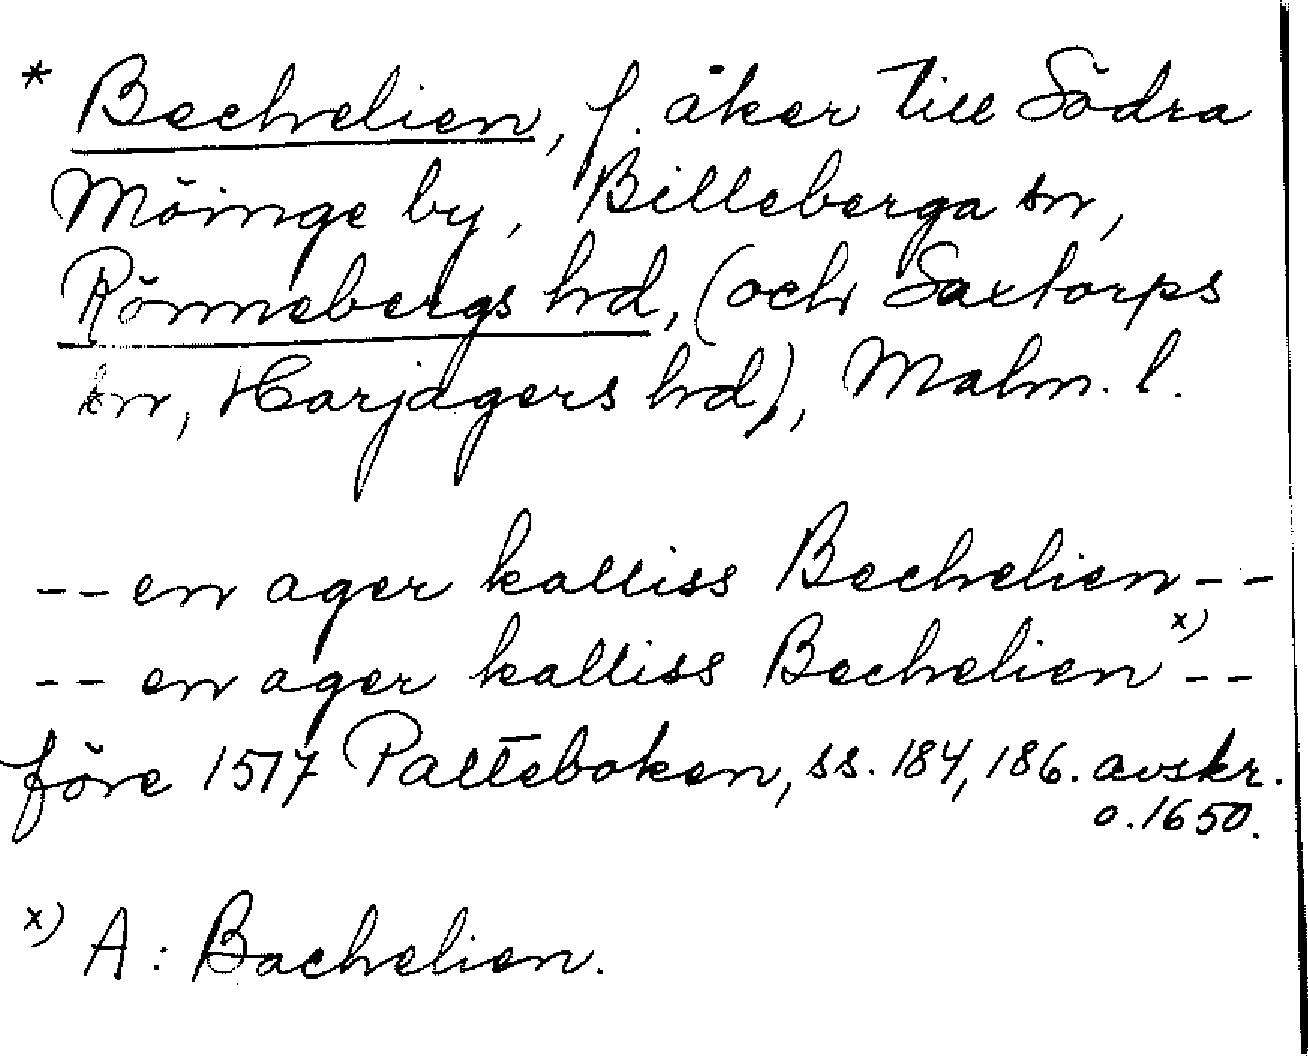 * Bechelien, f. åker till Södra
Möinge by, Billeberga sn,
Rönnebergs hd, (och Saxtorps
sn, Harjagers hd), Malm. l.
-- en ager kalliss Bechelien --
-- en ager kalliss Bechelien x) --
före 1517 Palteboken, ss. 184, 186. avskr.
o. 1650.
x) A: Bachelien.